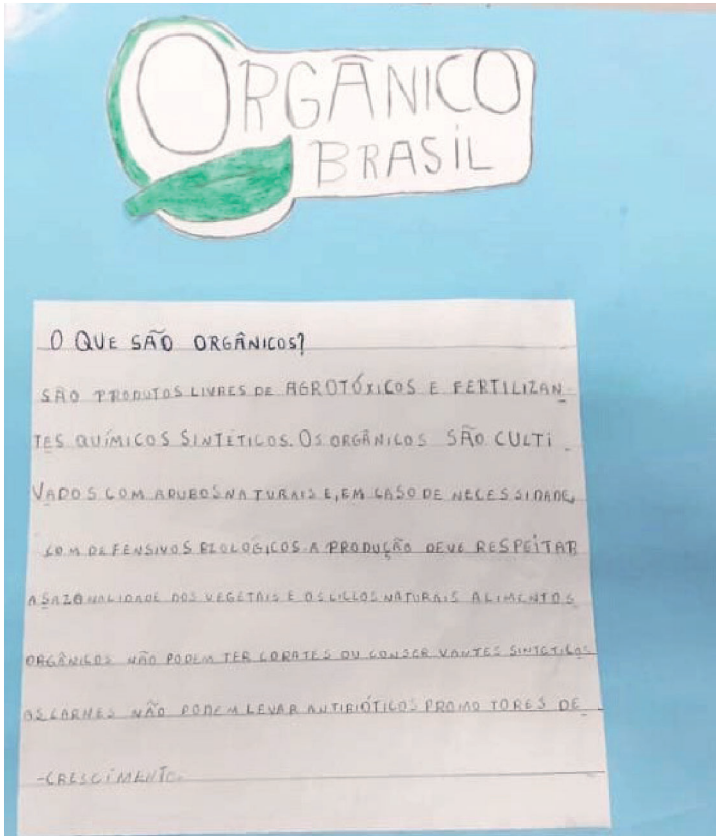 ORGÂNICO
BRASIL
O QUE SÃO ORGÂNICOS?
SÃO PRODUTOS LIVRES DE AGROTÓXICOS E FERTILIZAN-
TES QUÍMICOS SINTÉTICOS. OS ORGÂNICOS SÃO CULTI-
VADOS COM ADUBOS NATURAIS E, EM CASO DE NECESSIDADE,
COM DEFENSIVOS BIOLÓGICOS. A PRODUÇÃO DEVE RESPEITAR
A SAZONALIDADE DOS VEGETAIS E OS CICLOS NATURAIS ALIMENTOS
ORGÂNICOS NÃO PODEM TER CORATES OU CONSERVANTES SINTÉTICOS
AS CARNES NÃO PODEM LEVAR ANTIBIÓTICOS PROMOTORES DE
-CRESCIMENTO.